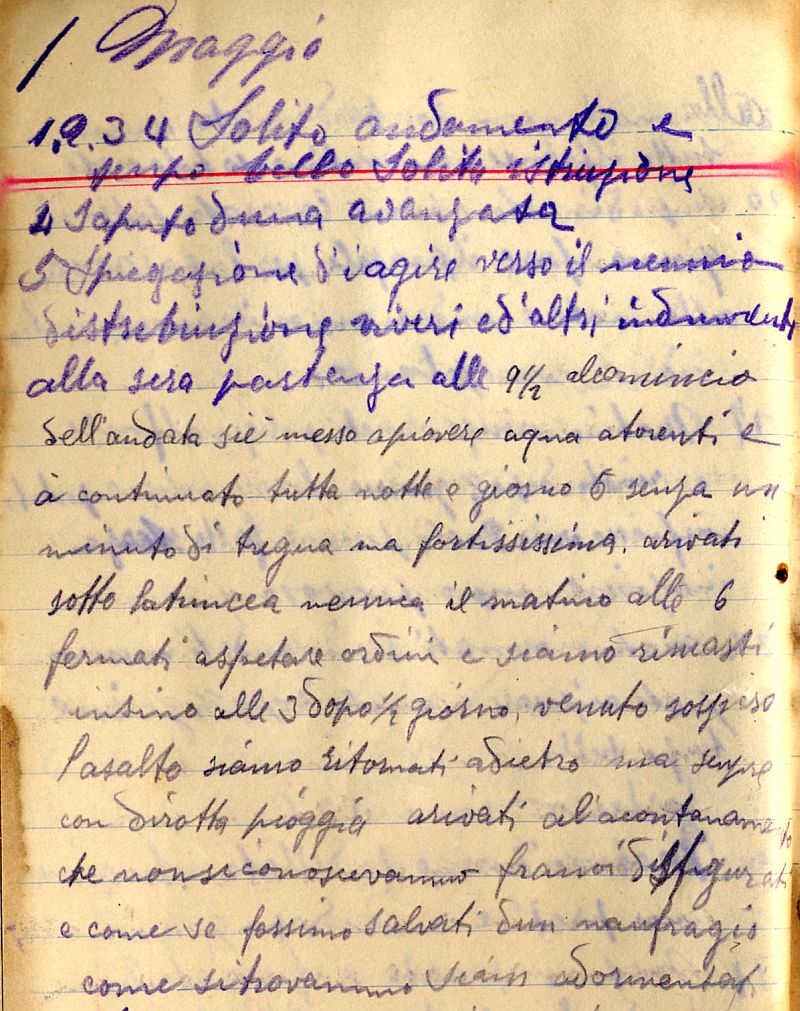 1 Maggio
1.2.3 4 Solito andamento e
tempo bello Solita istruzione
4 Saputo d'una avanzata
5 Spiegazione d'iagire verso il nemico
distrebuizione viveri ed'altri indumenti
alla sera partenza alle 9½ alcomincio
dell'andata sie messo apiovere aqua atorenti e
à continuato tutta notte e giorno 6 senza un
minuto di tregua ma fortississima. arivati
sotto latrincea nemica il matino alle 6
fermati aspetare ordini e siamo rimasti
insino alle 3 dopo ½ giorno, venuto sospeso
lasalto siamo ritornati adietro ma sempre
con dirotta pioggia arivati al'acontanamento
che nonsiconoscevanmo franoi disfigurati
e come se fossimo salvati dun naufragio
come sitrovanmo siam adormentati